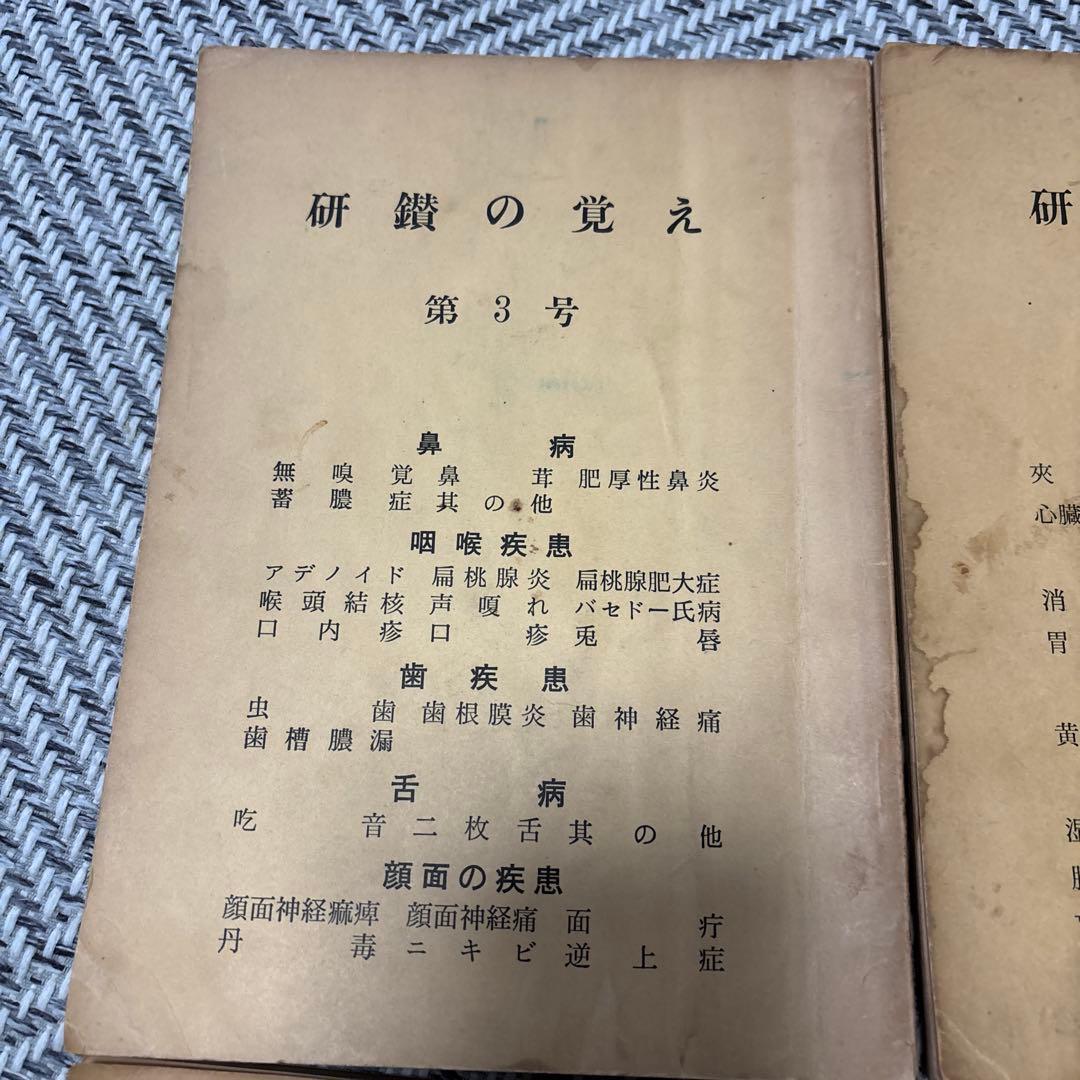 研鑚の覚え
第3号
鼻病
無嗅覚 鼻茸 肥厚性鼻炎
蓄膿症 其の他
咽喉疾患
アデノイド 扁桃腺炎 扁桃腺肥大症
喉頭結核 声嗄れ バセドー氏病
口内疹 口疹 兎唇
歯疾患
虫歯 歯根膜炎 歯神経痛
歯槽膿漏
舌病
吃音 二枚舌 其の他
顔面の疾患
顔面神経痲痺 顔面神経痛 面疔
丹毒 ニキビ 逆上症
研
夾
心臓
消
胃
黄
湿